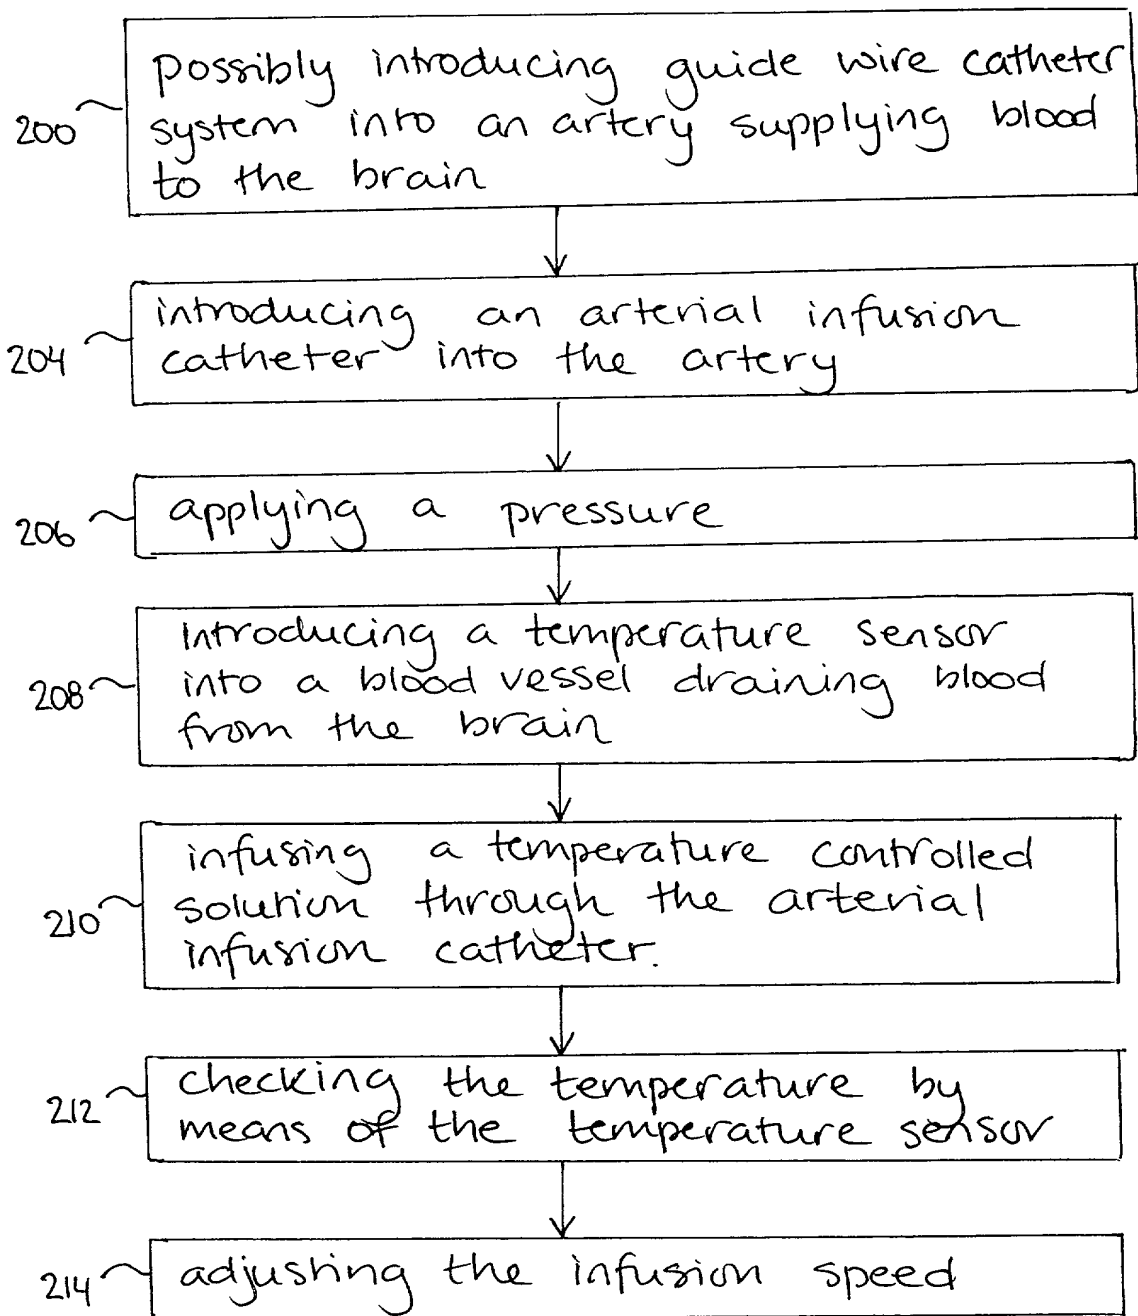 possibly introducing guide wire catheter
200 system into an artery supplying blood
to the brain
introducing an arterial infusion
204 catheter into the artery
206 applying a pressure
Introducing a temperature sensor
208 into a blood vessel draining blood
from the brain
infusing a temperature controlled
210 solution through the arterial
infusion catheter.
212 checking the temperature by
means of the temperature sensor
214 adjusting the infusion speed